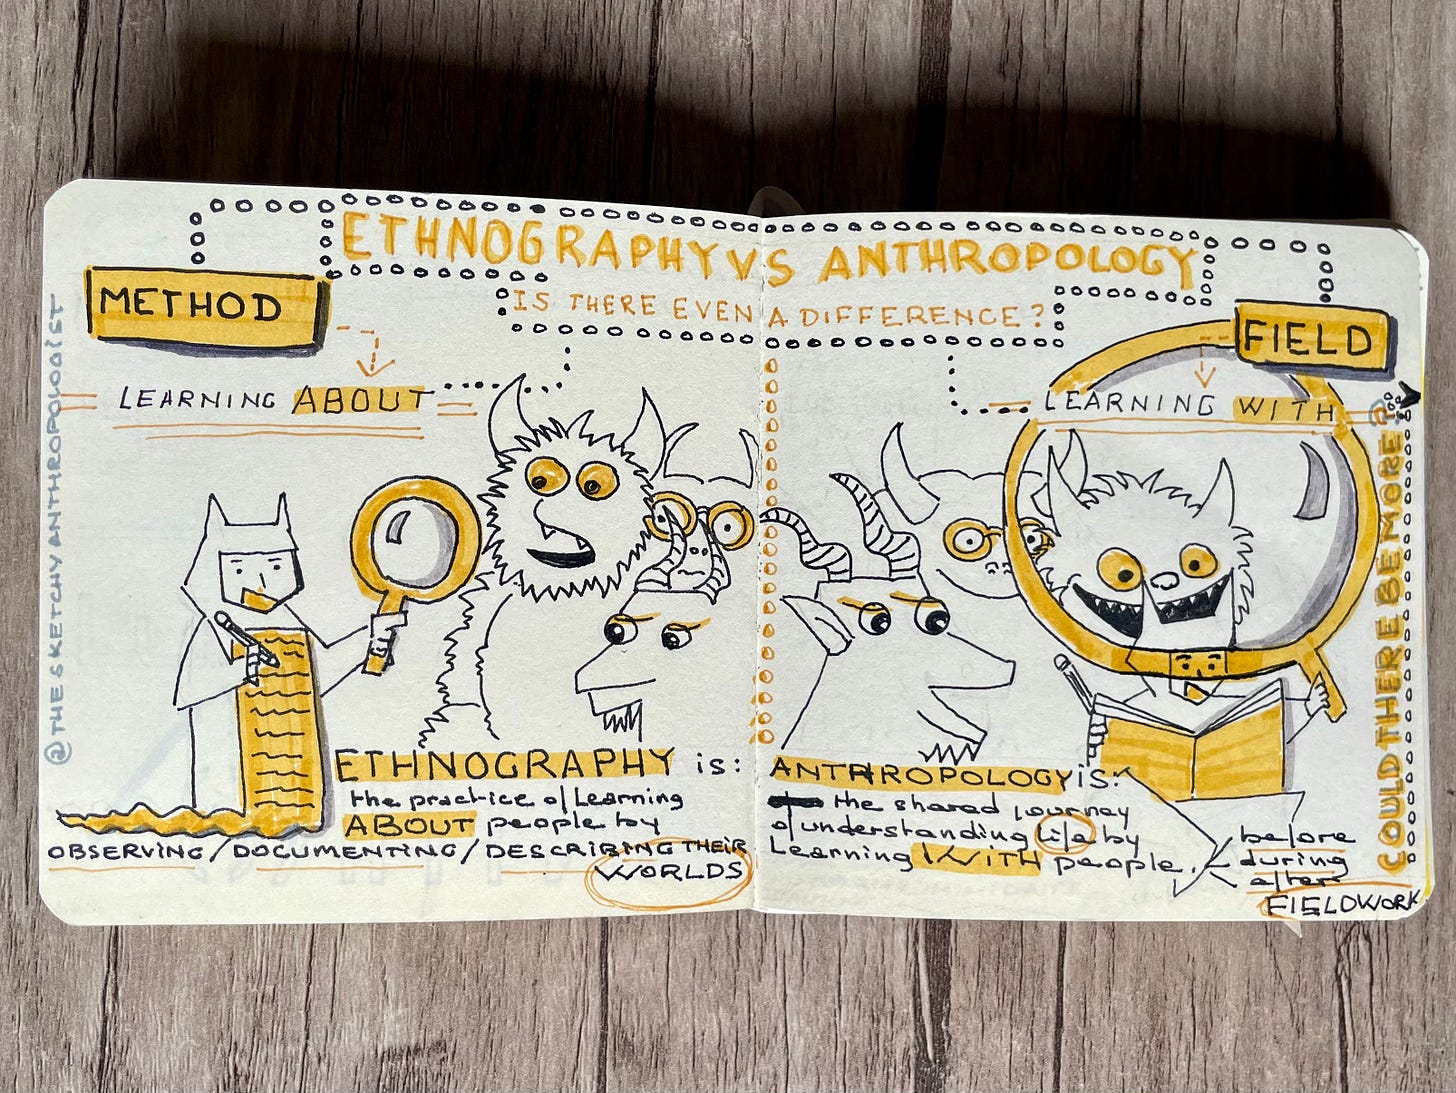 ETHNOGRAPHY VS ANTHROPOLOGY
IS THERE EVEN A DIFFERENCE?
METHOD
LEARNING ABOUT
FIELD
LEARNING WITH
@THESKETCHYANTHROPOLOGIST
ETHNOGRAPHY is:
the practice of learning
ABOUT people by
OBSERVING/DOCUMENTING/DESCRIBING THEIR
WORLDS
ANTHROPOLOGY is:
the shared journey
of understanding life by
Learning WITH people.
before
during
after
FIELDWORK
COULD THERE BE MORE?